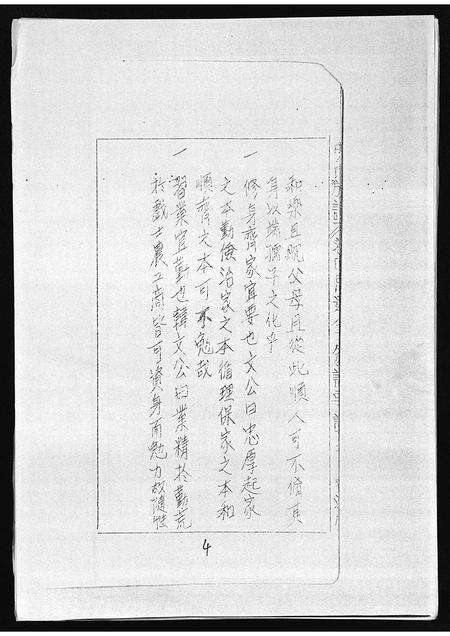 和樂且眈父母且從此順人可不脩其
身以端孺子之化乎
一修身齊家宜要也文公曰忠厚起家
之本勤儉治家之本循理保家之本和
順齊之本可不勉哉
一習業宜勤也韓文公曰業精於勤荒
於戲士農工商皆可資身而勉力故隨性
4